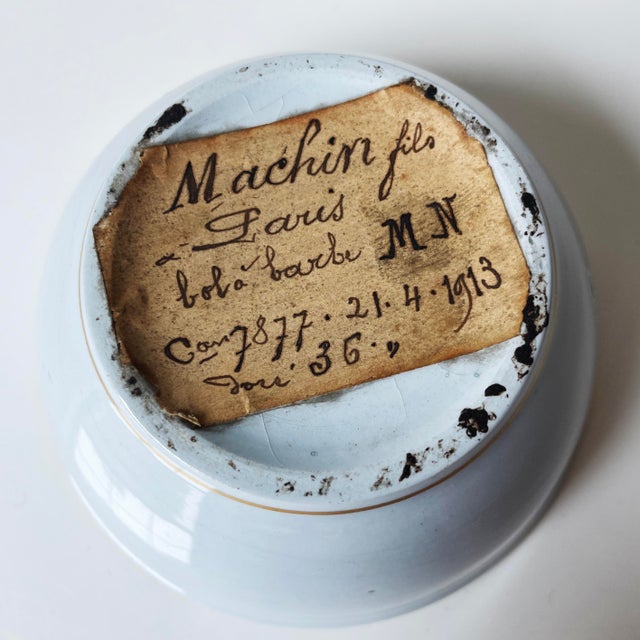 Machin fils
Paris
bol à barbe MN
Com 7877. 21.4.1913
doré. 36. "